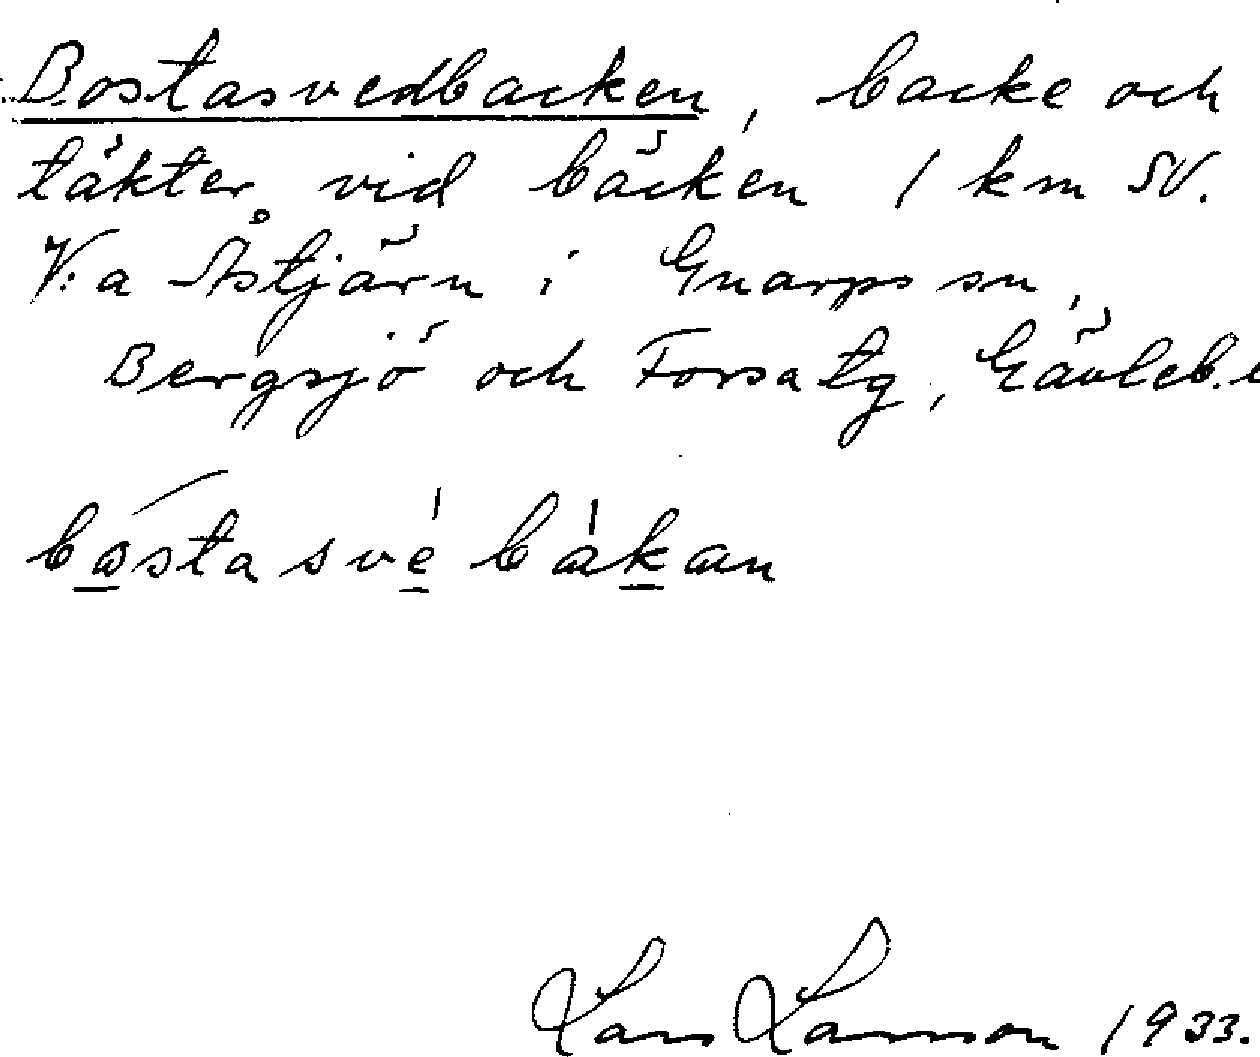 Bostasvedbacken, backe och
täkter vid bäcken 1 km SV.
V:a Åstjärn i Gnarps sn,
Bergsjö och Forsa tg, Gävleb.
bǫsta své bákan
Lars Larsson 1933.